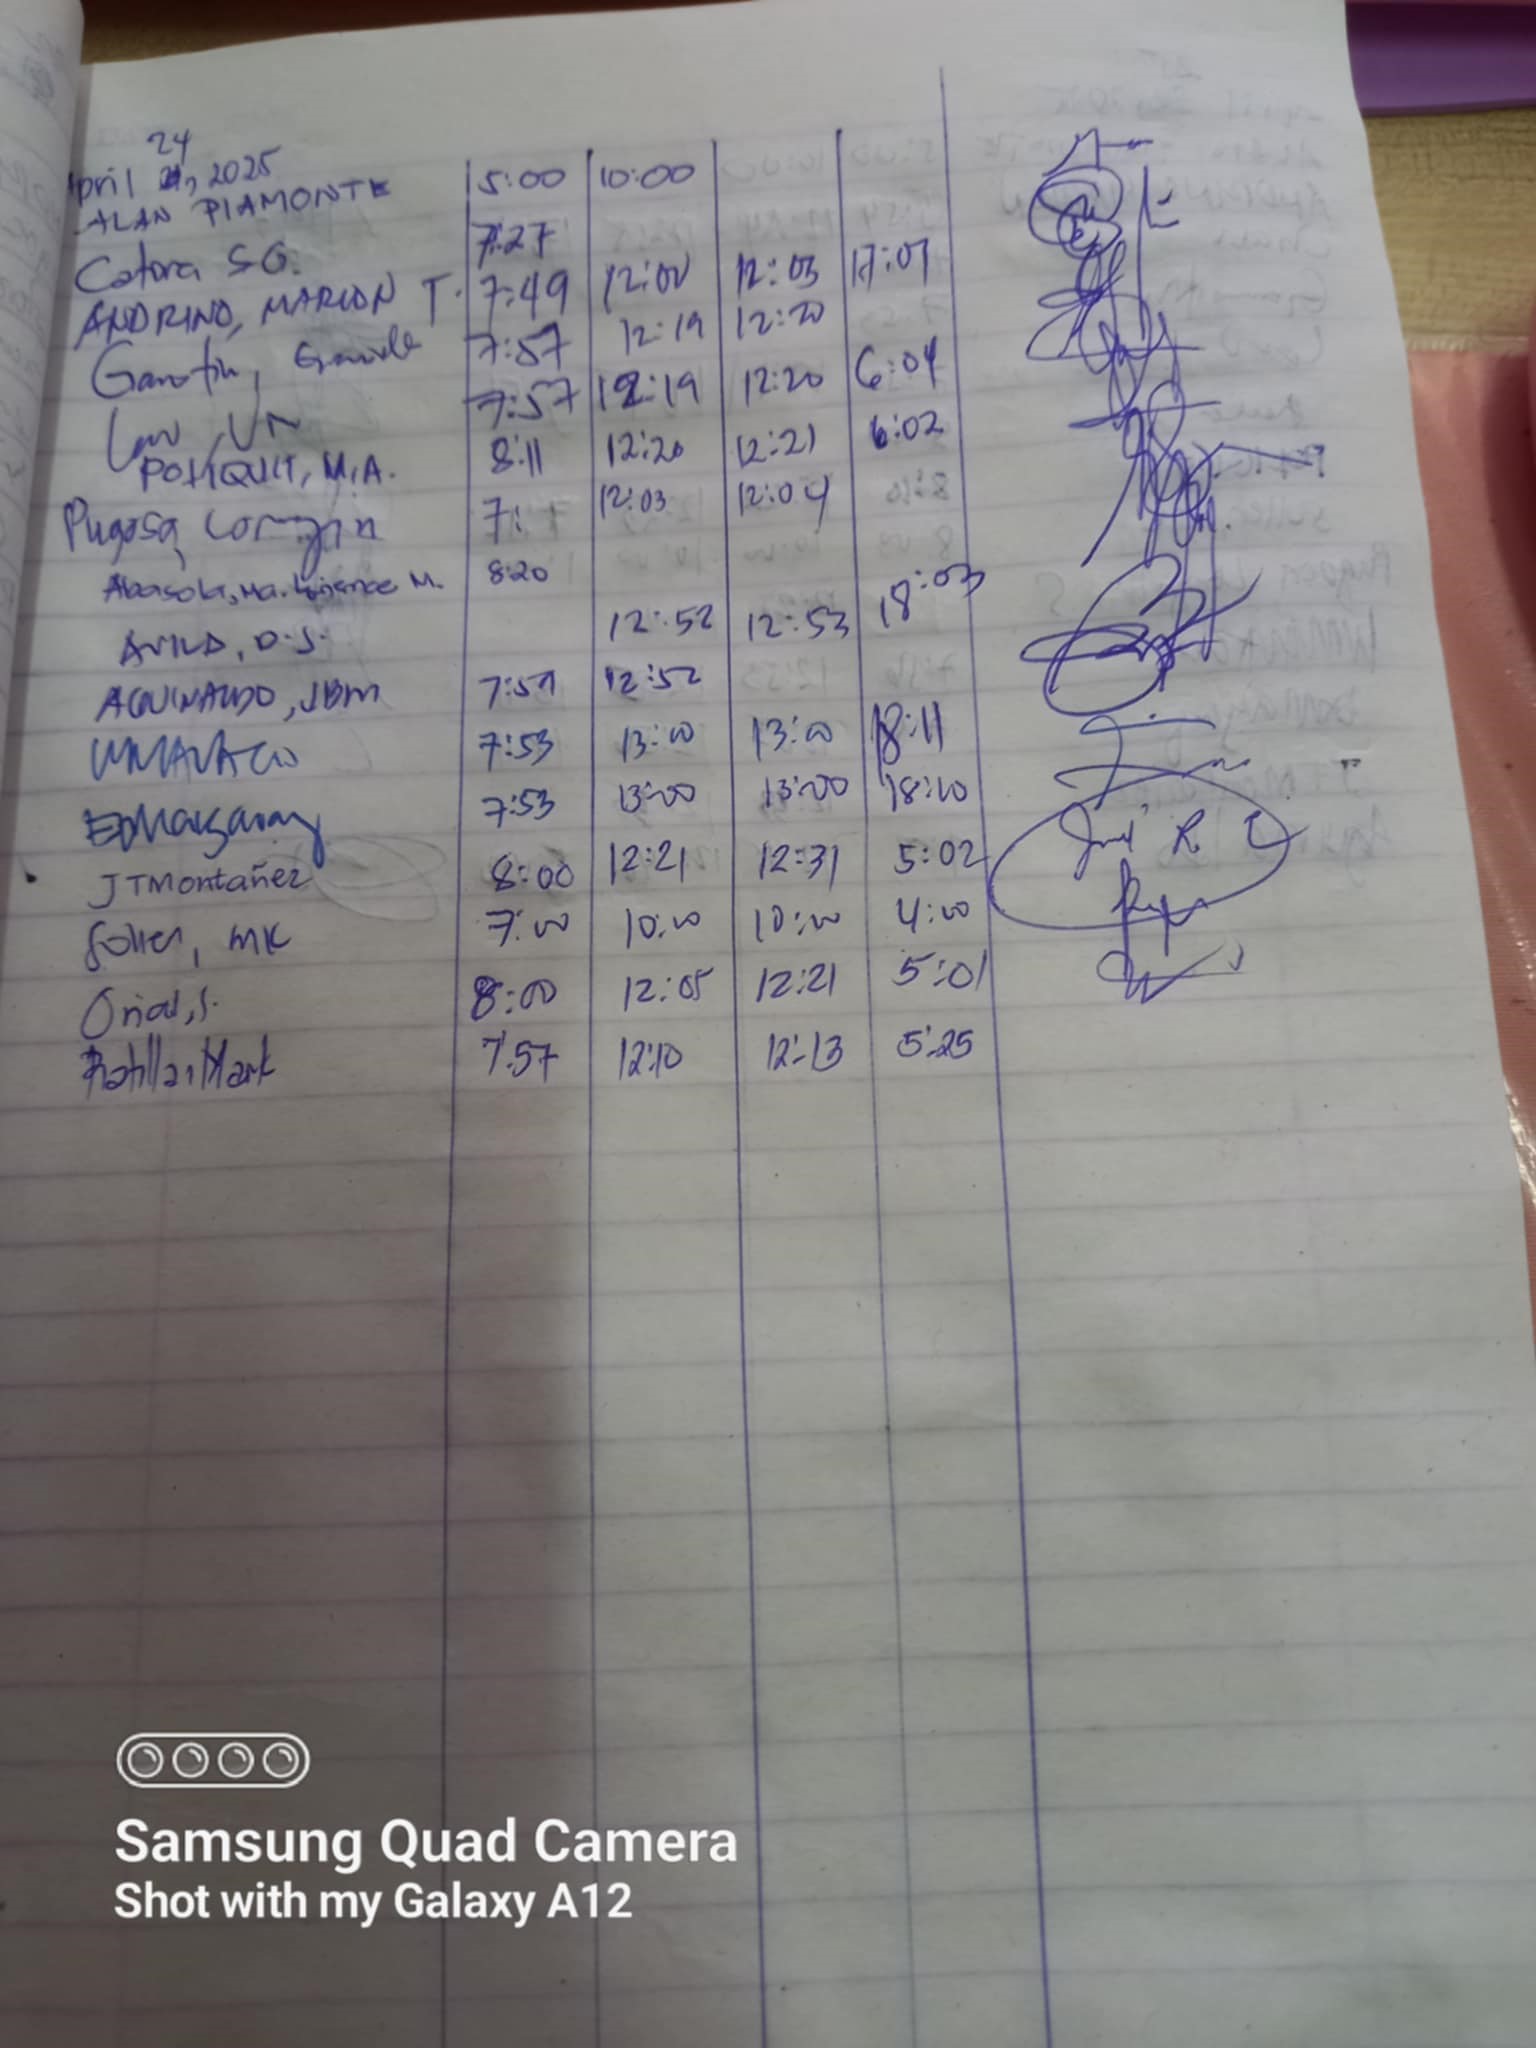 24
April 21, 2025
ALAN PIAMONTE 5:00 10:00
Catora S.G. 7:27
ANDRINO, MARION T. 7:49 12:00 12:03 17:07
Garotin, 7:57 12:19 12:20
7:57 12:19 12:20 6:04
POTIQUIT, M.A. 8:11 12:20 12:21 6:02
Pugosa, Corazon 7: 12:03 12:04
Abasola, Ma. M. 8:20
AVILA, D.S. 12:52 12:53 18:03
AGUINALDO, JBM 7:57 12:52
7:53 13:00 13:00 18:11
7:53 13:00 13:00 18:10
JTMontañez 8:00 12:21 12:31 5:02
Soller, MK 7:00 10:00 10:00 4:00
Oriol, S. 8:00 12:05 12:21 5:01
Mark 7:57 12:10 12:13 5:25
Samsung Quad Camera
Shot with my Galaxy A12